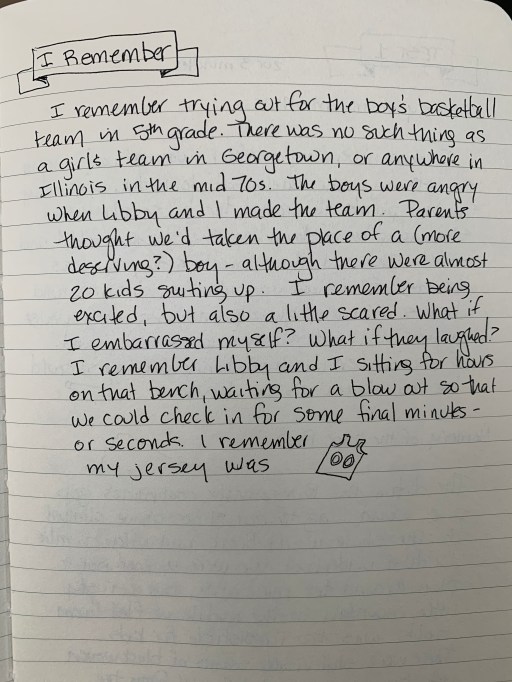 I Remember
I remember trying out for the boy's basketball
team in 5th grade. There was no such thing as
a girls team in Georgetown, or anywhere in
Illinois in the mid 70s. The boys were angry
when Libby and I made the team. Parents
thought we'd taken the place of a (more
deserving?) boy - although there were almost
20 kids suiting up. I remember being
excited, but also a little scared. What if
I embarrassed myself? What if they laughed?
I remember Libby and I sitting for hours
on that bench, waiting for a blow out so that
we could check in for some final minutes -
or seconds. I remember
my jersey was 00